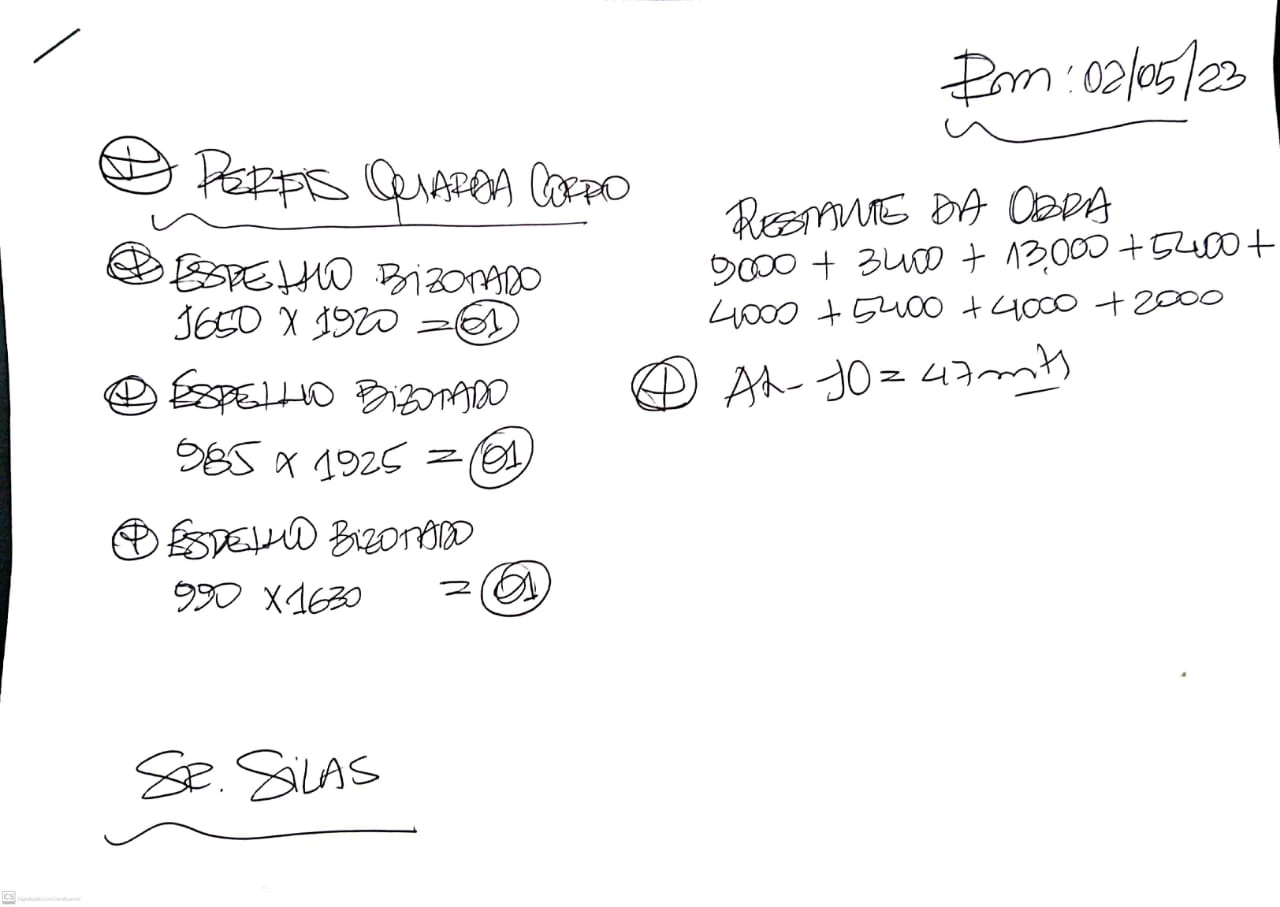 Bm: 02/05/23
PERFIS QUARDA CORPO
ESPELHO BIZOTADO
1650 X 1920 = 01
ESPELHO BIZOTADO
985 X 1925 = 01
ESPELHO BIZOTADO
990 X 1630 = 01
RESTANTE DA OBRA
9000 + 3400 + 13,000 + 5400 +
4000 + 5400 + 4000 + 2000
= 47 mts
SR. SILAS
CS